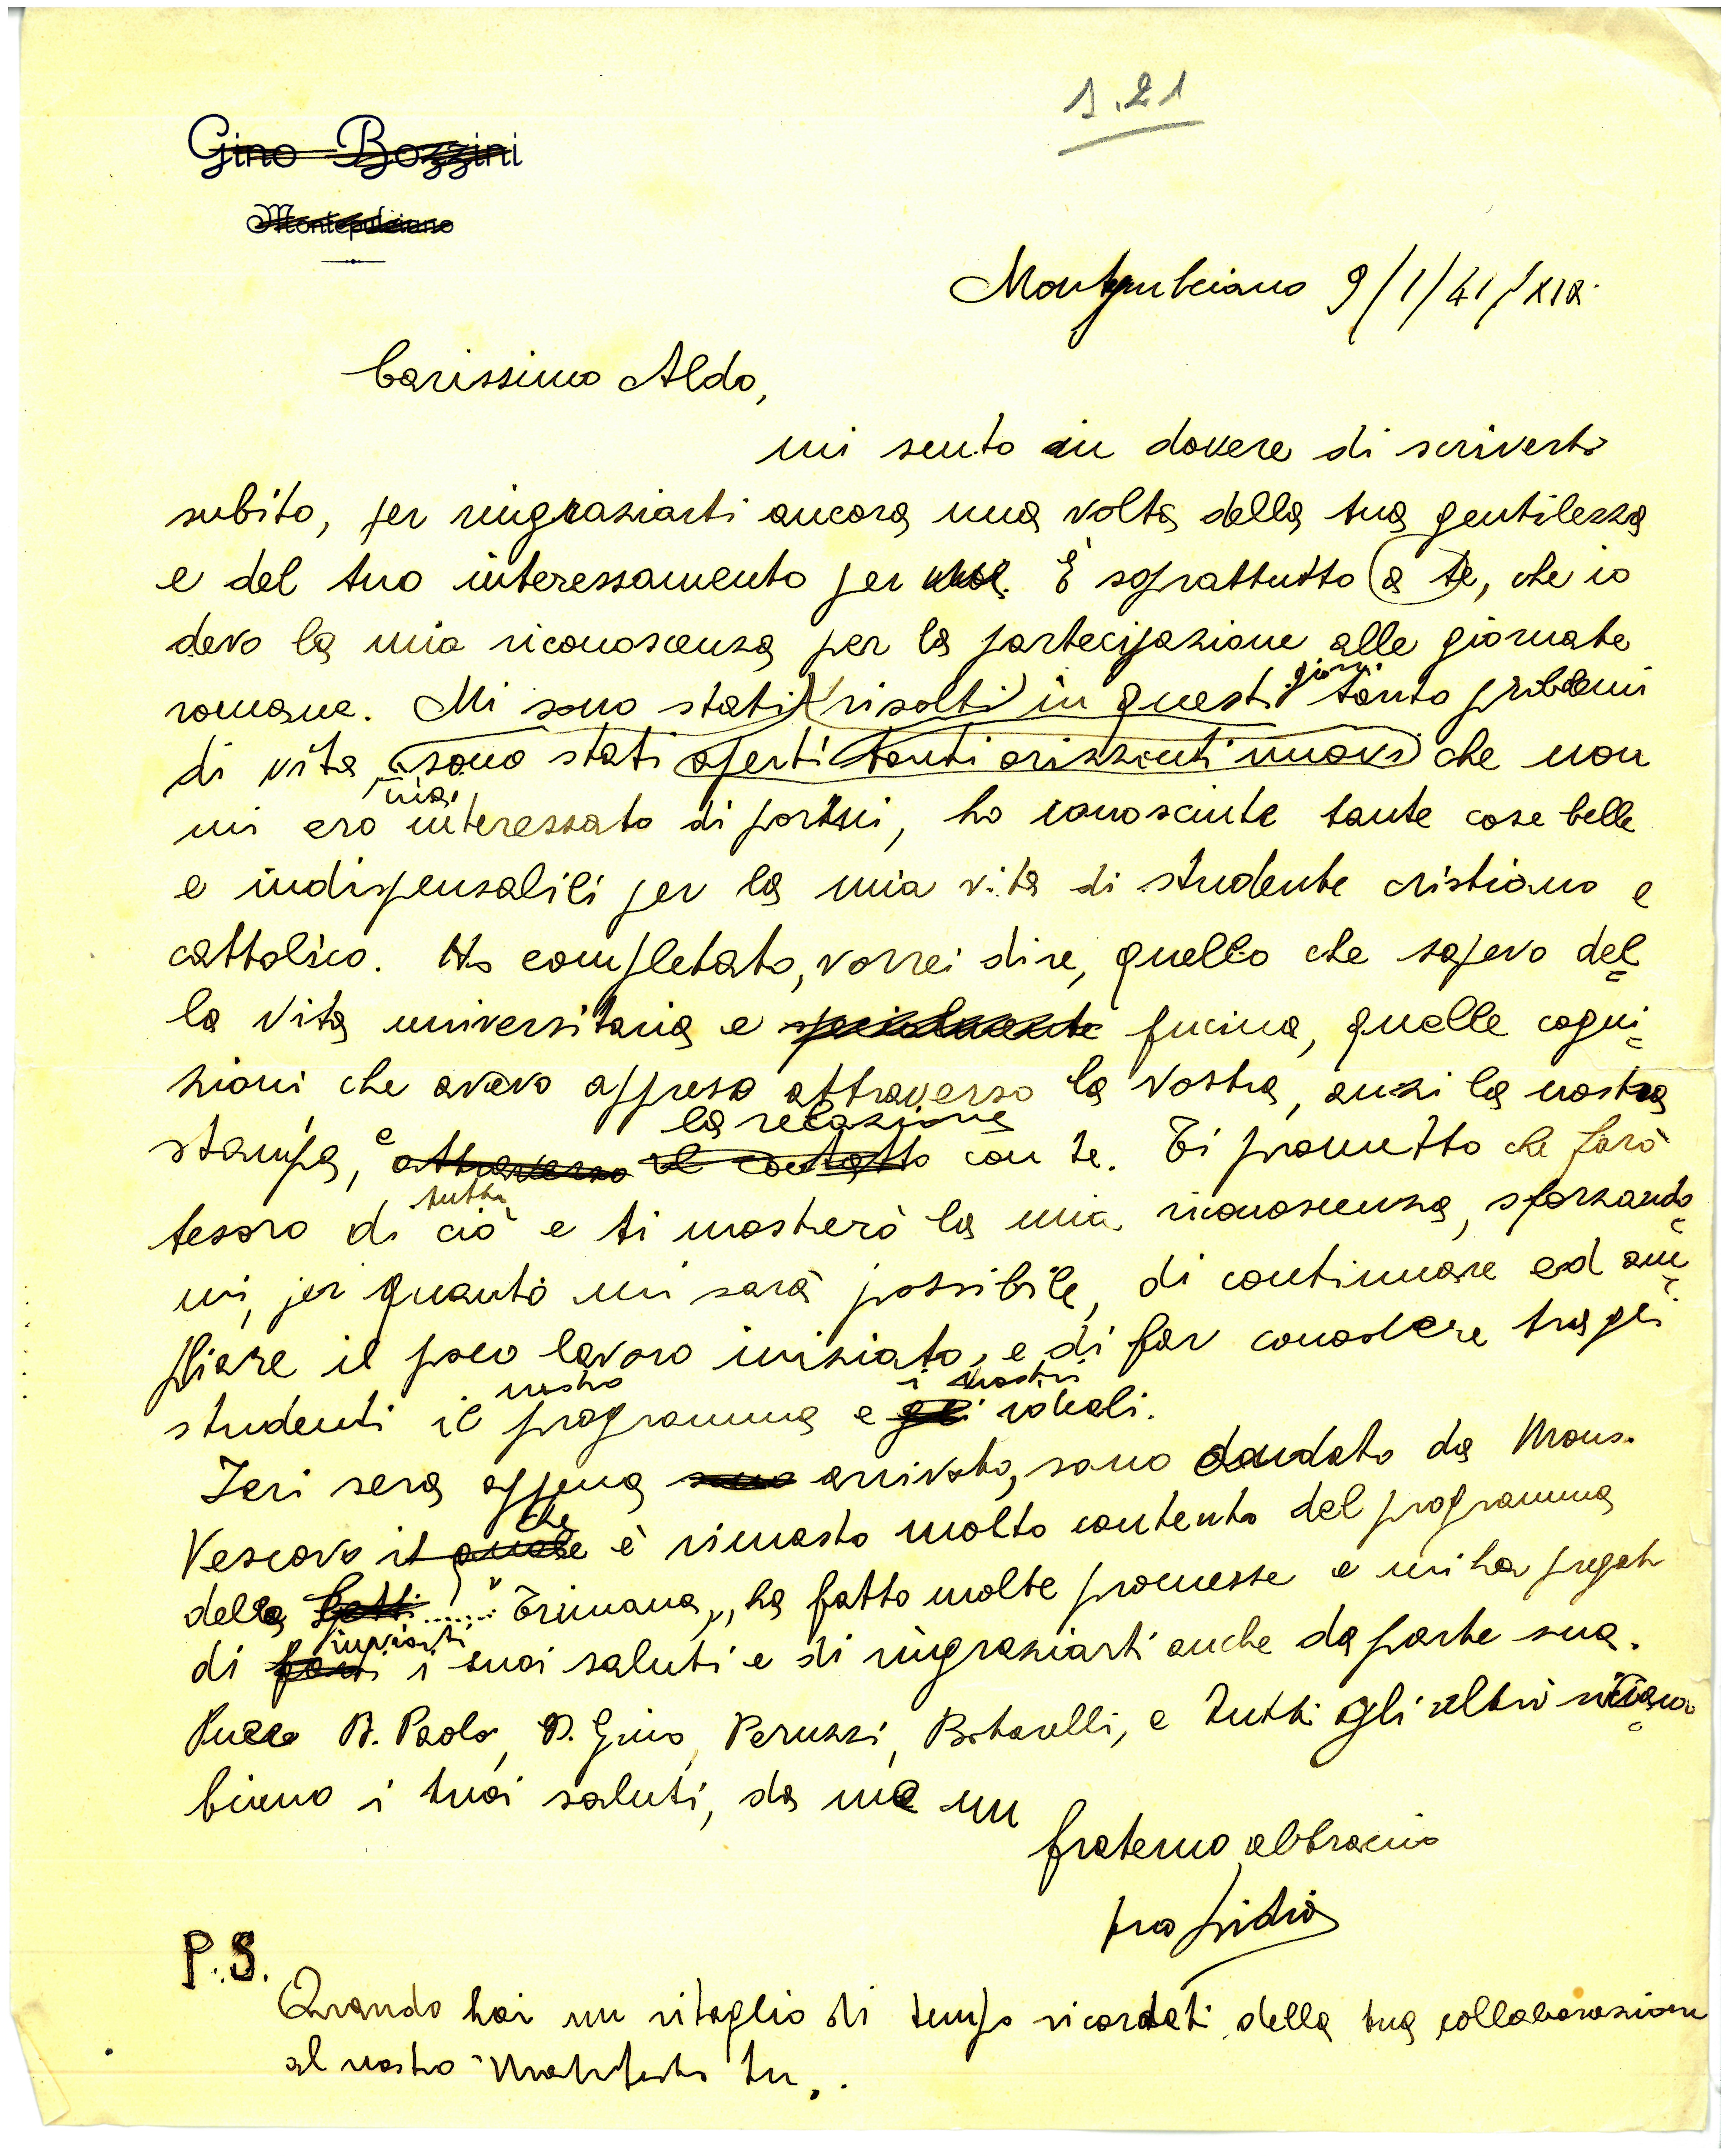 1.21
Gino Bozzini
Montepulciano
Montepulciano 9/1/41/XIX.
Carissimo Aldo,
mi sento in dovere di scriverti
subito, per ringraziarti ancora una volta della tua gentilezza
e del tuo interessamento per me. È soprattutto a te, che io
devo la mia riconoscenza per la partecipazione alle giornate
giorni
romane. Mi sono stati risolti in questi tanto problemi
di vita, sono stati aperti tanti orizzonti nuovi che non
mai
mi ero interessato di porsi, ho conosciute tante cose belle
e indispensabili per la mia vita di studente cristiano e
cattolico. Ho completato, vorrei dire, quello che sapevo del=
la vita universitaria e specialmente fucina, quelle cogni=
zioni che avevo appreso attraverso la vostra, anzi la nostra
la relazione
stampa, e attraverso il contatto con te. Ti prometto che farò
tutto
tesoro di ciò e ti mosterò la mia riconoscenza, sforzando=
mi, per quanto mi sarà possibile, di continuare ed am=
pliare il poco lavoro iniziato, e di far conoscere tra gli
nostro i nostri
studenti il programma e gli ideali.
Ieri sera appena sono arrivato, sono andato da Mons.
che
Vescovo il quale è rimasto molto contento del programma
della ....... "Trimana„, ha fatto molte promesse e mi ha pregato
inviarti
di farti i suoi saluti e di ringraziarti anche da parte sua.
D. Paolo, D. Gino, Peruzzi, Botarelli, e tutti gli altri ricam=
biano i tuoi saluti, da me un
fraterno abbraccio
tuo
P.S.
Quando hai un ritaglio di tempo ricordati della tua collaborazione
al nostro